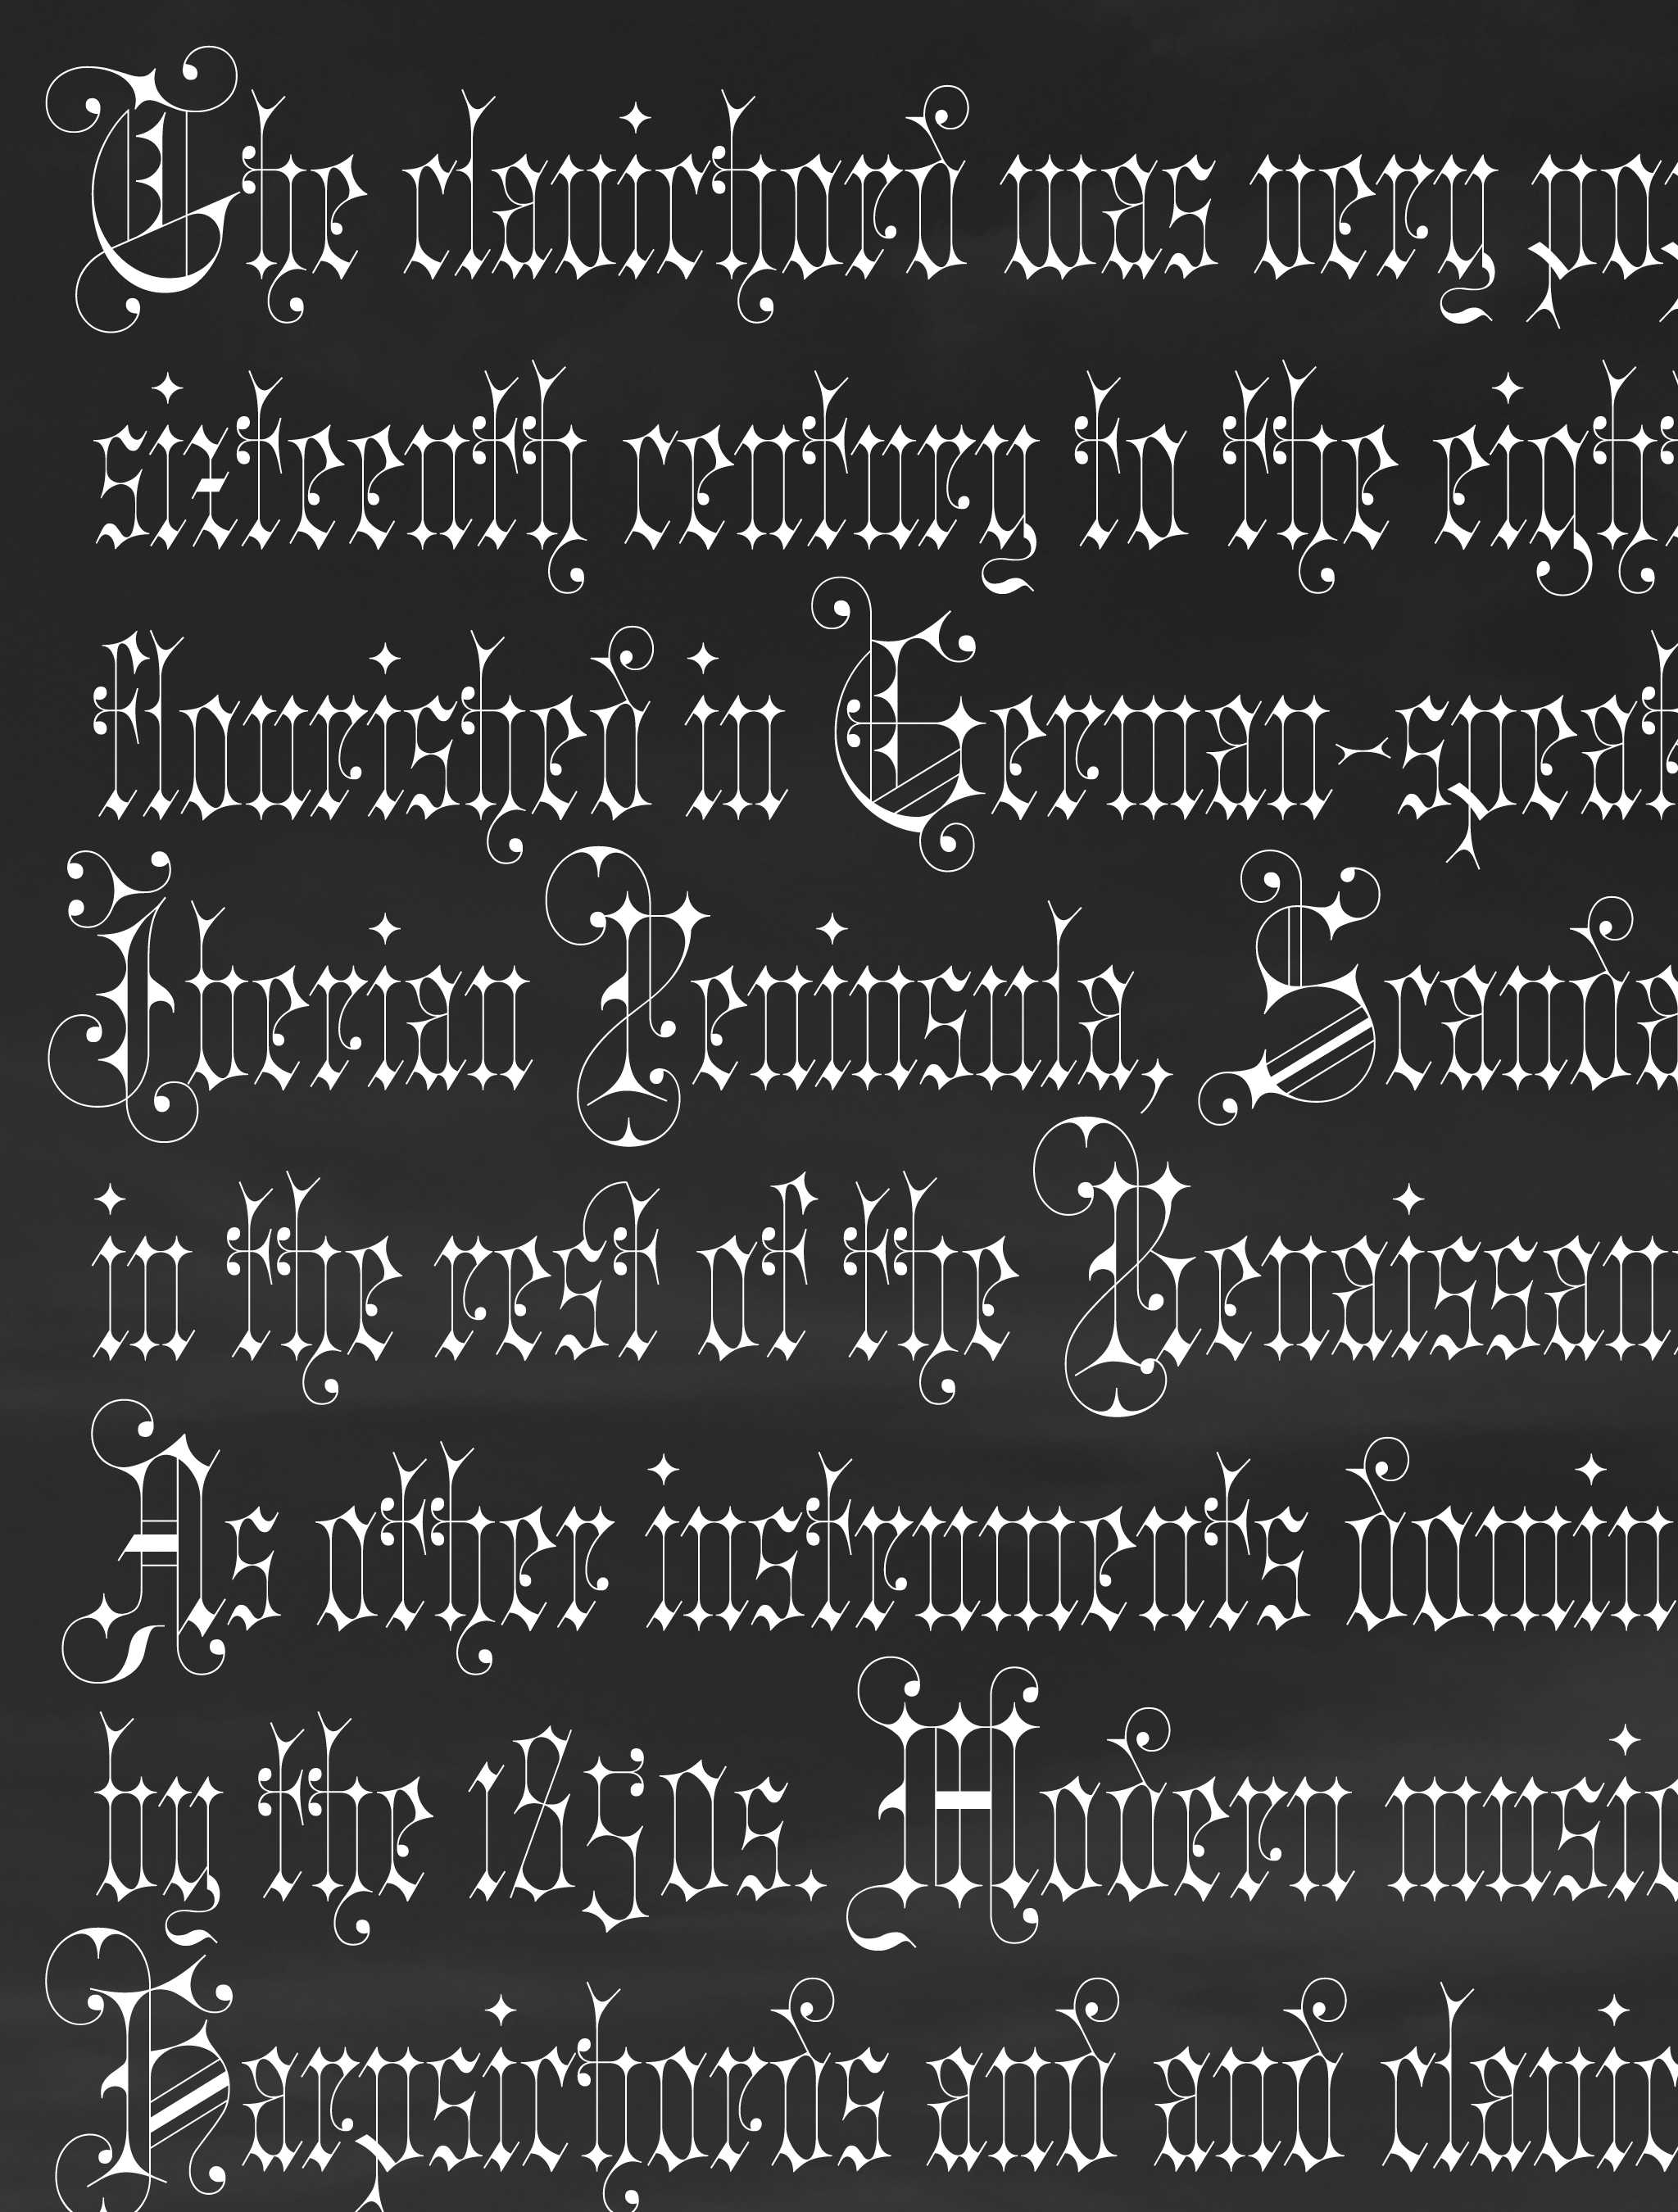 The clavichord was very pop
sixteenth century to the eight
flourished in German-speak
Iberian Peninsula, Scandi
in the rest of the Renaissan
As other instruments domin
by the 1850s. Modern music
Harpsichords and and clavic